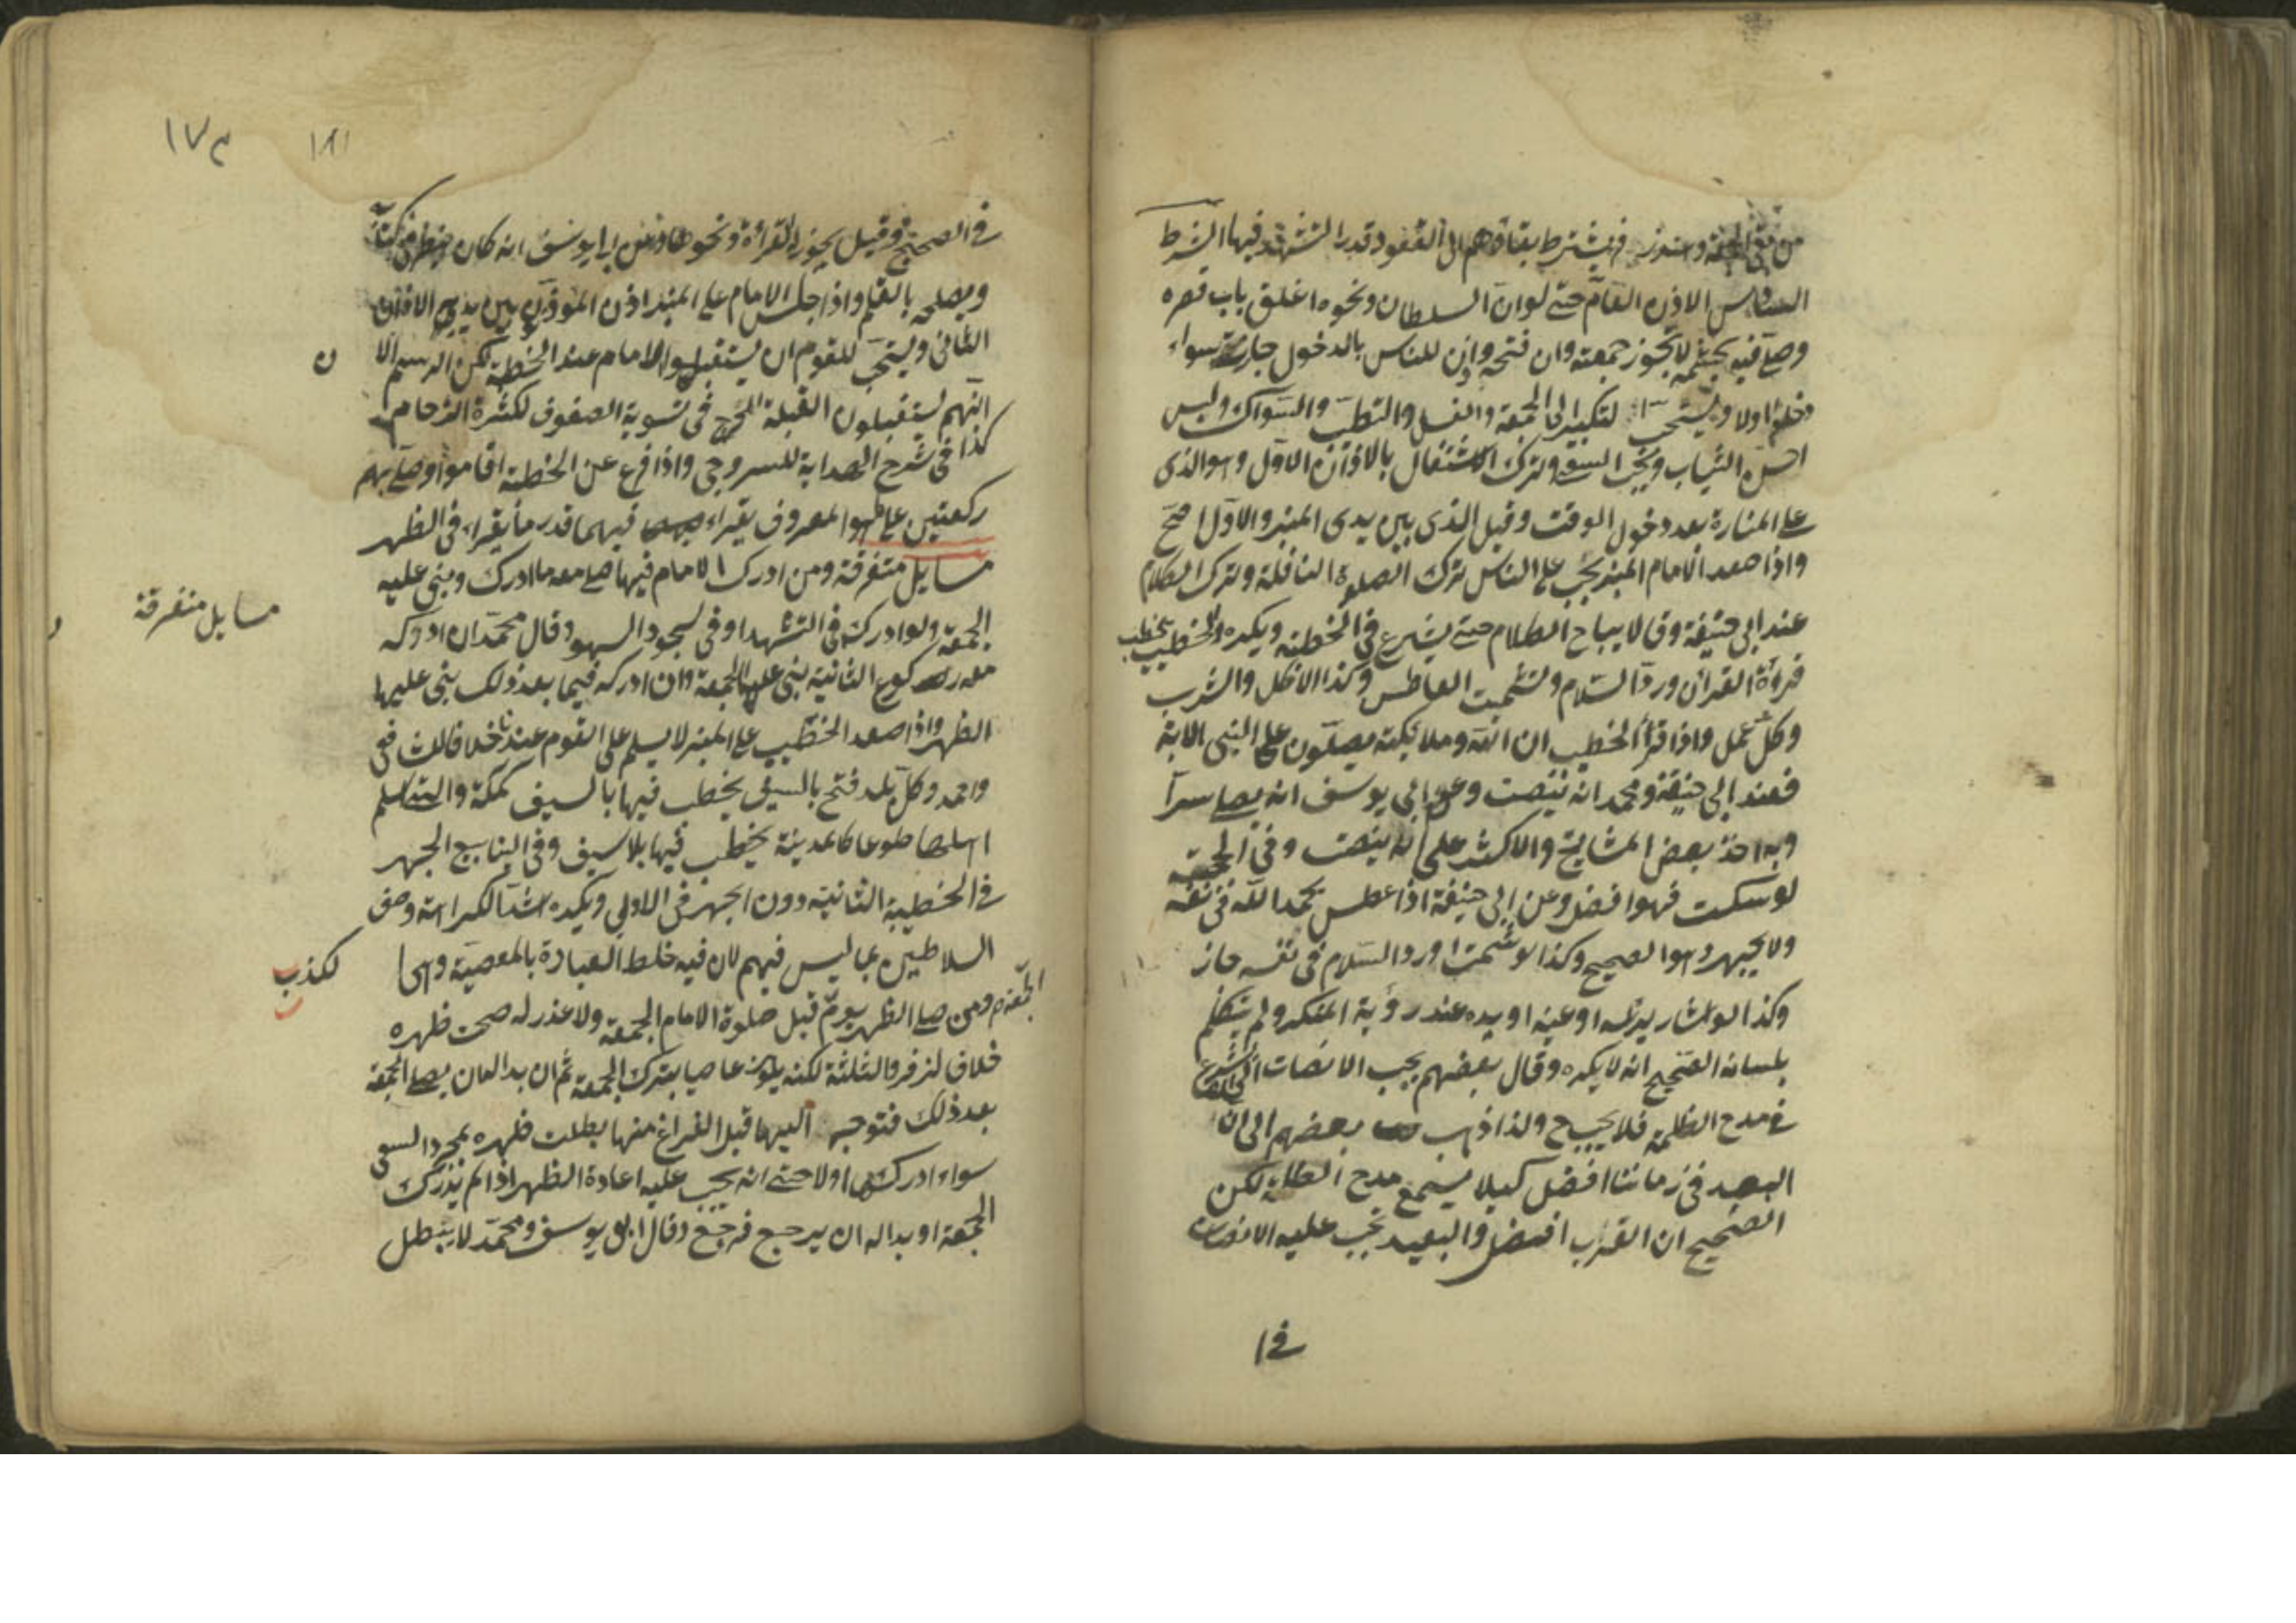 وعند زفر يشترط بقاؤهم الى القعود قدر التشهد فيها الشرط
السادس الاذن العام حتى لو ان السلطان ونحوه اغلق باب قصره
وصلى فيه بحشمه لا تجوز جمعته وان فتحه واذن للناس بالدخول جازت سواء
دخلوا اولا ويستحب التبكير الى الجمعة والغسل والتطيب والسواك ولبس
احسن الثياب ويجب السعي وترك الاشتغال بالاذان الاول وهو الذى
على المنارة بعد دخول الوقت وقيل الذى بين يدى المنبر والاول اصح
واذا صعد الامام المنبر يجب على الناس ترك الصلوة النافلة وترك الكلام
عند ابى حنيفة وقالا يباح الكلام حتى يشرع فى الخطبة ويكره والخطيب يخطب
قراءة القران ورد السلام وتشميت العاطس وكذا الاكل والشرب
وكل عمل واذا قرأ الخطيب ان الله وملائكته يصلون على النبى الاية
فعند ابى حنيفة ومحمد انه ينصت وعن ابى يوسف انه يصلى سرا
وبه اخذ بعض المشايخ والاكثر على انه ينصت وفى الحجة
لو سكت فهو افضل وعن ابى حنيفة اذا عطس يحمد الله فى نفسه
ولا يجهر وهو الصحيح وكذا لو شمت او رد السلام فى نفسه جاز
وكذا لو اشار براسه او عينه او بيده عند رؤية المنكر ولم يتكلم
بلسانه الصحيح انه لا يكره وقال بعضهم يجب الانصات
فى مدح الظلمة فلا يجب ولذا ذهب بعضهم الى ان
البعيد فى زماننا افضل كيلا يسمع مدح الظلمة لكن
الصحيح ان القرب افضل والبعيد يجب عليه الانصات
فى ا
١٧٣
١٨١
فى الصحيح وقيل يجوز له القراءة ونحوها وعن ابى يوسف انه كان ينظر فى كتابه
ويصلحه بالقلم واذا جلس الامام على المنبر اذن المؤذن بين يديه الاذان
الثانى ويستحب للقوم ان يستقبلوا الامام عند الخطبة لكن الرسم الان
انهم يستقبلون القبلة للحرج فى تسوية الصفوف لكثرة الزحام
كذا فى شرح الهداية للسروجى واذا فرغ عن الخطبة اقاموا وصلى بهم
ركعتين على ما هو المعروف يقراء فيهما قدر ما يقراء فى الظهر
مسايل متفرقة ومن ادرك الامام فيها صلى معه ما ادرك وبنى عليه
مسايل متفرقة
الجمعة ولو ادركه فى التشهد او فى سجود السهو وقال محمد ان ادركه
معه ركوع الثانية بنى عليها الجمعة وان ادركه فيما بعد ذلك بنى عليها
الظهر واذا صعد الخطيب على المنبر لا يسلم على القوم عندنا خلافا للشافعى
واحمد وكل بلد فتح بالسيف يخطب فيها بالسيف كمكة والتى اسلم
اهلها طوعا كالمدينة يخطب فيها بلا سيف وفى الينابيع الجهر
فى الخطبة الثانية دون الجهر فى الاولى ويكره اشد الكراهة وصف
السلاطين بما ليس فيهم لان فيه خلط العبادة بالمعصية وهى
لكذب
ومن صلى الظهر يوم الجمعة قبل صلوة الامام الجمعة ولا عذر له صحت ظهره
خلاف لزفر والثلثة لكنه يكون عاصيا بترك الجمعة ثم ان بدا له ان يصلى الجمعة
بعد ذلك فتوجه اليها قبل الفراغ منها بطلت ظهره بمجرد السعى
سواء ادركها او لا حتى انه يجب عليه اعادة الظهر اذا لم يدرك
الجمعة او بدا له ان يرجع فرجع وقال ابو يوسف ومحمد لا يبطل